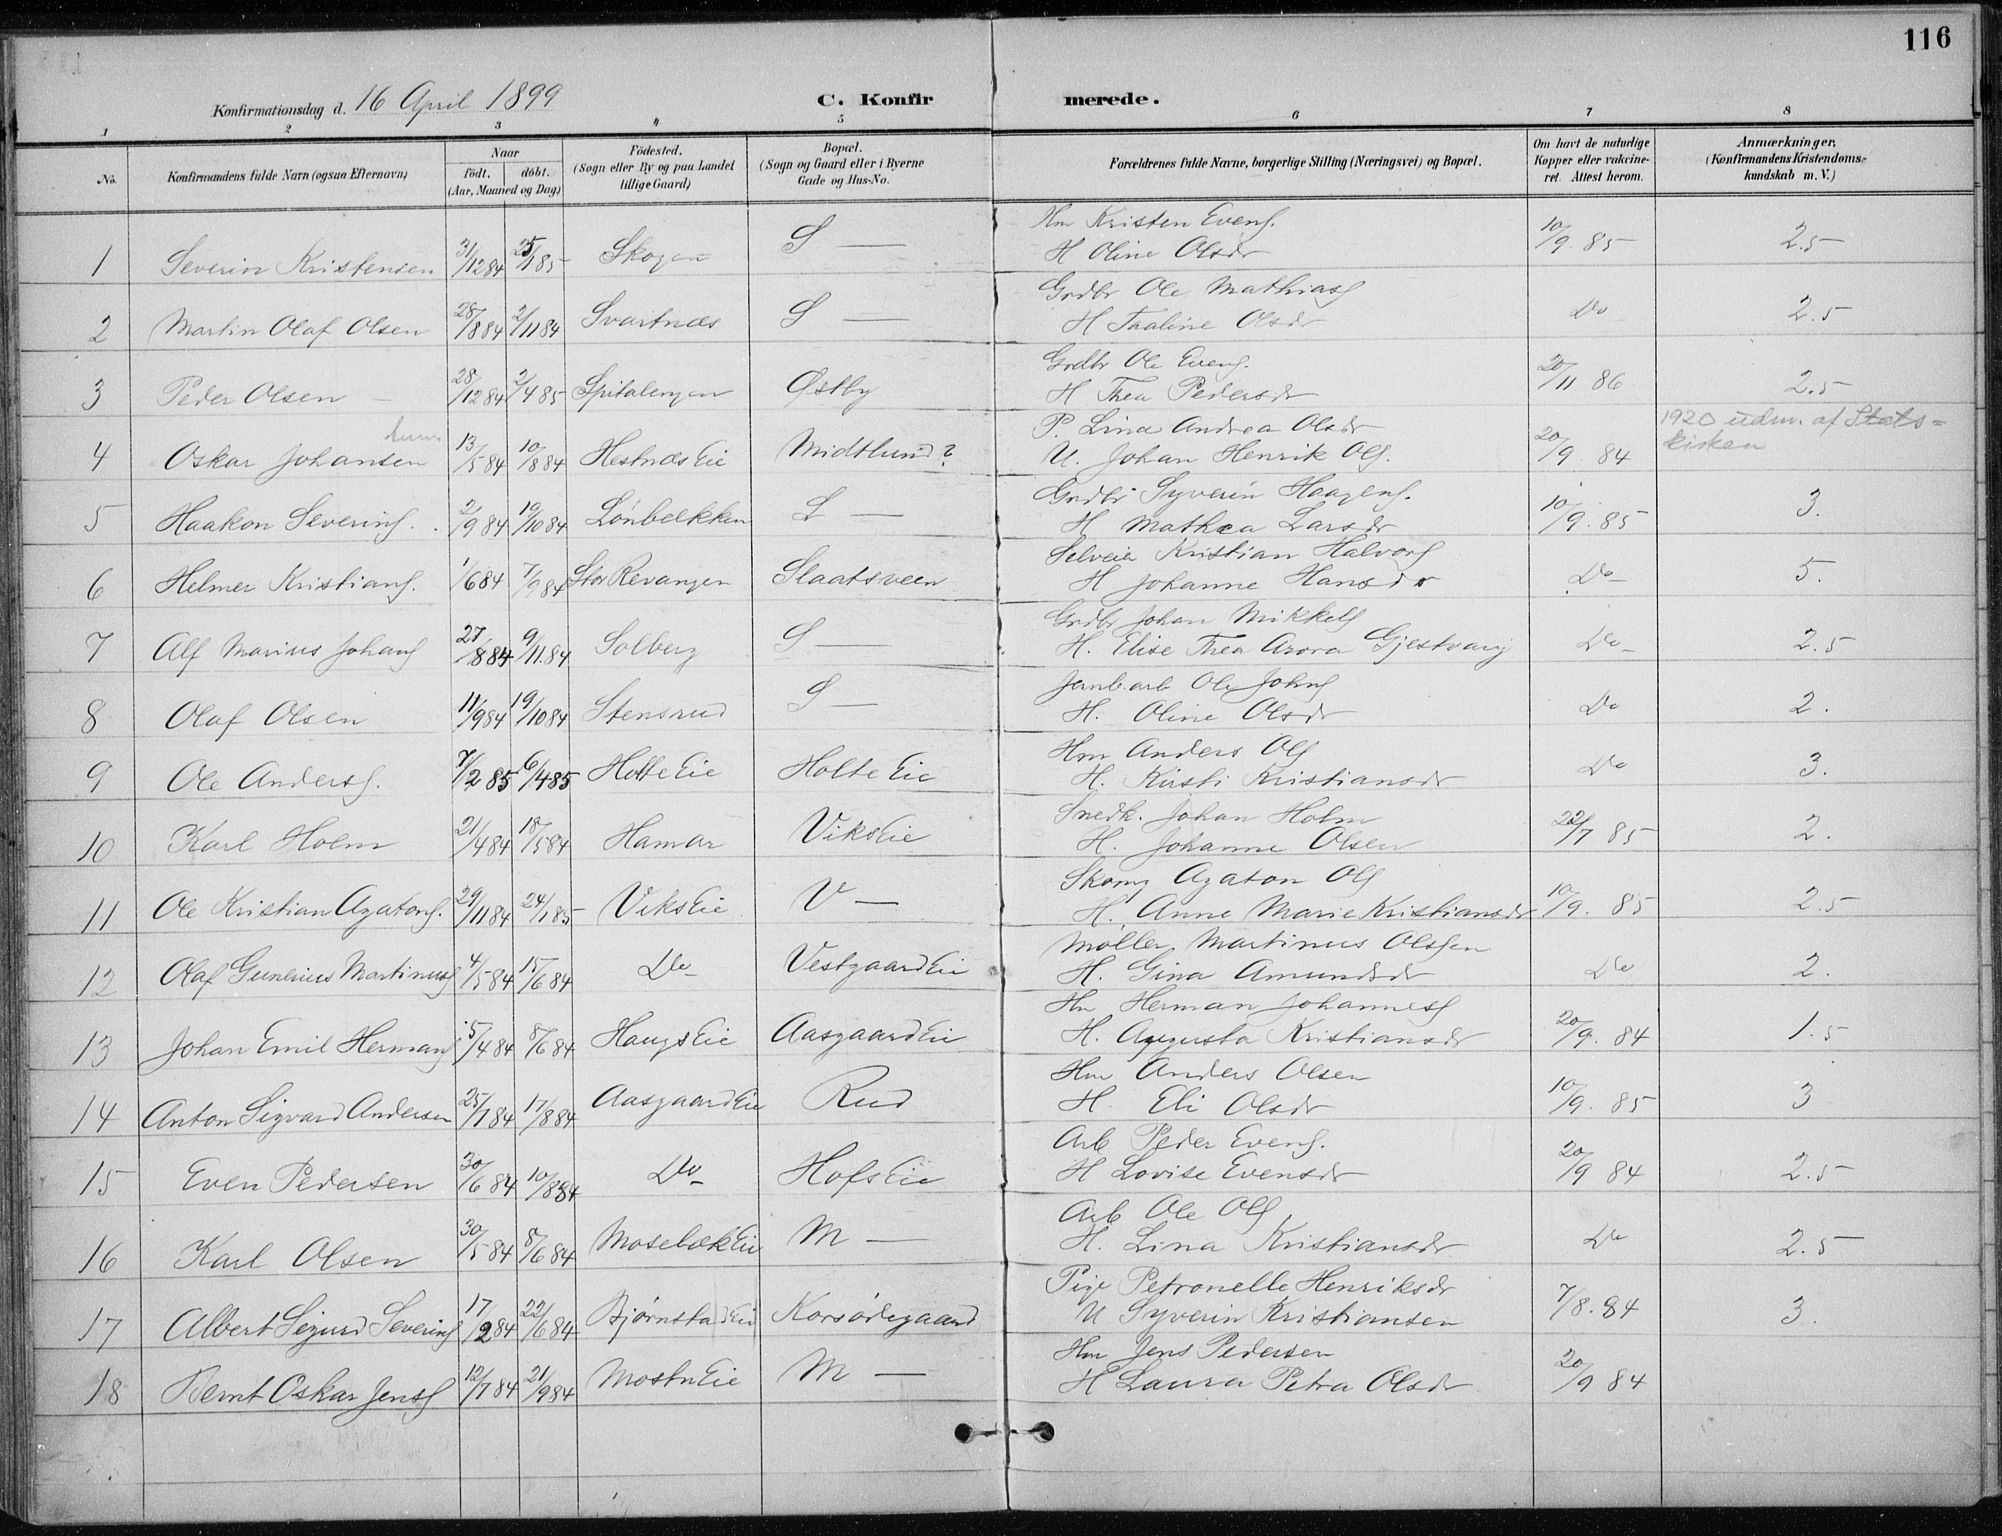 116
Konfirmationsdag d. 16 April 1899 C. Konfirmerede.
1 2 3 4 5 6 7 8
No. Konfirmandens fulde Navn (ogsaa Efternavn) Naar födt. döbt. (Aar, Maaned og Dag) Födested. (Sogn eller By og paa Landet lillige Gaard) Bopæl. (Sogn og Gaard eller i Byerne Gade og Hus-No. Forældrenes fulde Navne, borgerlige Stilling (Næringsvei) og Bopæl. Om havt de naturlige Kopper eller vakcineret. Attest herom. Anmærkninger, (Konfirmandens Kristendomskundskab m. V.)
Hm Kristen Evens.
1 Severin Kristensen 31/12 84 25/1 85 Skogen S — H Oline Olsdr 10/9. 85 2.5
Grdbr Ole Mathias
2 Martin Olaf Olsen 28/8 84 2/11 84 Svartnæs S — H Thaline Olsdr Do 2.5
Grdbr Ole Evens.
3 Peder Olsen — 28/12 84 2/4 85 Spitalengen Østby H Thea Pedersdr 20/11 86 2.5
P. Lina Andrea Olsdr 1920 udm. af Stats=
4 Oskar Johansen 13/5 84 10/8 84 Hestnæs Eie Midtlund? U. Johan Henrik Ols. 20/9. 84 kirken
Grdbr Syverin Haagens.
5 Haakon Severins. 2/9 84 19/10 84 Lönbekken L — H Mathea Larsdr 10/9. 85 3.
Selveier Kristian Halvors
6 Helmer Kristians. 1/6 84 7/9 84 Stor Revangen Slaatsveen H Johanne Hansdr Do 5.
Grdbr Johan Mikkels
7 Alf Marius Johans 27/8 84 9/11. 84 Solberg S — H. Elise Thea Arora Gjestvang Do 2.5
Jernb.arb Ole Johns
8 Olaf Olsen 11/9 84 19/10 84 Stensrud S — H. Oline Olsdr Do 2.
Hm Anders Ols
9 Ole Anders. 7/2 85 6/4 85 Holte Eie Holte Eie H. Kirsti Kristiansdr Do 3.
Snedk. Johan Holm
10 Karl Holm 21/4 84 18/5 84 Hamar Viks Eie H. Johanne Olsen 22/7 85 2.
Skom Agaton Ols
11 Ole Kristian Agatons. 29/11 84 24/1 85 Viks Eie V — H. Anne Marie Kristiansdr 10/9. 85 2.5
Møller Martinus Olssen
12 Olaf Gunerius Martinus 4/5 84 15/6 84 Do Vestgaard Eie H. Gina Amundsdr Do 2.
Hm Herman Johannes
13 Johan Emil Hermans 15/4 84 8/6 84 Haugs Eie Aasgaard Eie H. Augusta Kristiansdr 20/9. 84 1.5
Hm Anders Olsen
14 Anton Sigvard Andersen 25/7 84 17/8 84 Aasgaard Eie Rud H Eli Olsdr 10/9. 85 3
Arb Peder Evens.
15 Even Pedersen 30/6 84 10/8 84 Do Hofs Eie H Lovise Evensdr 20/9 84 2.5
Arb Ole Ols
16 Karl Olsen 30/5 84 8/6 84 Mosebæk Eie M — H. Lina Kristiansdr Do 2.5
Pige Petronelle Henriksdr
17 Albert Sigurd Severins 17/2 84 22/6 84 Bjørnstad Eie Korsødegaard U Syverin Kristiansen 7/8. 84 3.
Hm Jens Pedersen
18 Bernt Oskar Jens 12/7 84 21/9 84 Mostu Eie M — H Laura Petra Olsdr 20/9 84